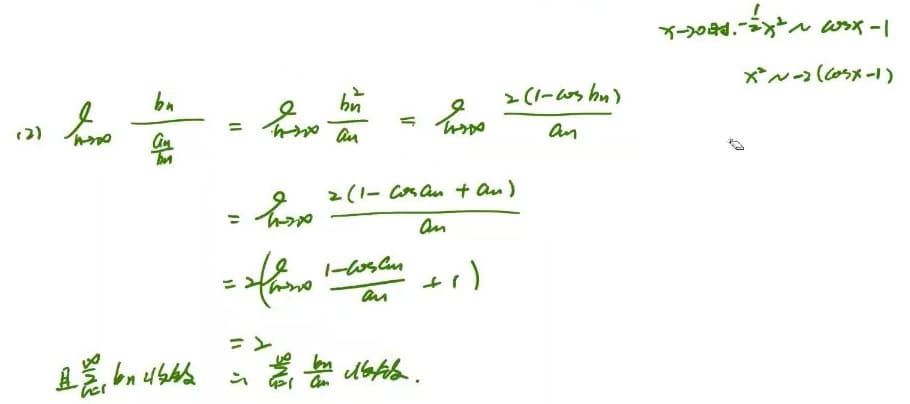 x→0时. -1/2 x² ~ cosx-1
x² ~ -2(cosx-1)
(2) lim_{n→∞} b_n/(a_n/b_n) = lim_{n→∞} b_n²/a_n = lim_{n→∞} 2(1-cos b_n)/a_n
= lim_{n→∞} 2(1-cos a_n + a_n)/a_n
= 2(lim_{n→∞} (1-cos a_n)/a_n + 1)
= 2
且 ∑_{n=1}^{∞} b_n 收敛 ∴ ∑_{n=1}^{∞} b_n/a_n 收敛.